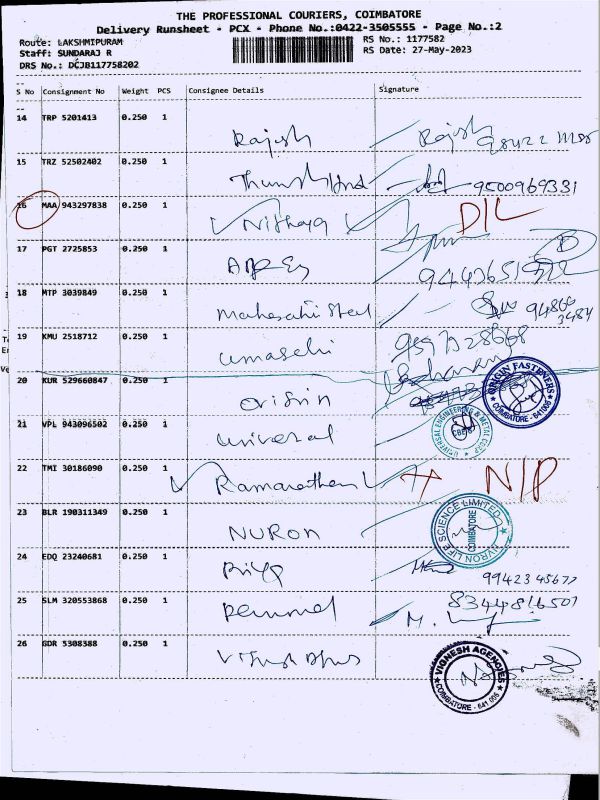 THE PROFESSIONAL COURIERS, COIMBATORE
Delivery Runsheet - PCX - Phone No.:0422-3505555 - Page No.:2
Route: LAKSHMIPURAM
Staff: SUNDARAJ R
DRS No.: DCJB117758202
RS No.: 1177582
RS Date: 27-May-2023
S No Consignment No Weight PCS Consignee Details Signature
14 TRP 5201413 0.250 1
Rajesh Rajesh
15 TRZ 52502402 0.250 1
9500969331
16 MAA 943297838 0.250 1
Nithya D/L
17 PGT 2725853 0.250 1
18 MTP 3039849 0.250 1
Mahesahi Steel 94866
3484
19 KMU 2518712 0.250 1
Umasehi
20 KUR 529660847 0.250 1
Origin ORIGIN FASTENERS COIMBATORE - 641006
21 VPL 943096502 0.250 1
Universal UNIVERSAL ENGINEERING & METAL CORP CBE-6
22 TMI 30186090 0.250 1
N/P
23 BLR 190311349 0.250 1
NURON NURON LIFE SCIENCE LIMITED COIMBATORE
24 EDQ 23240681 0.250 1
Priya
25 SLM 320553868 0.250 1
8344816507
M.
26 GDR 5308388 0.250 1
VIGNESH AGENCIES COIMBATORE - 641 006